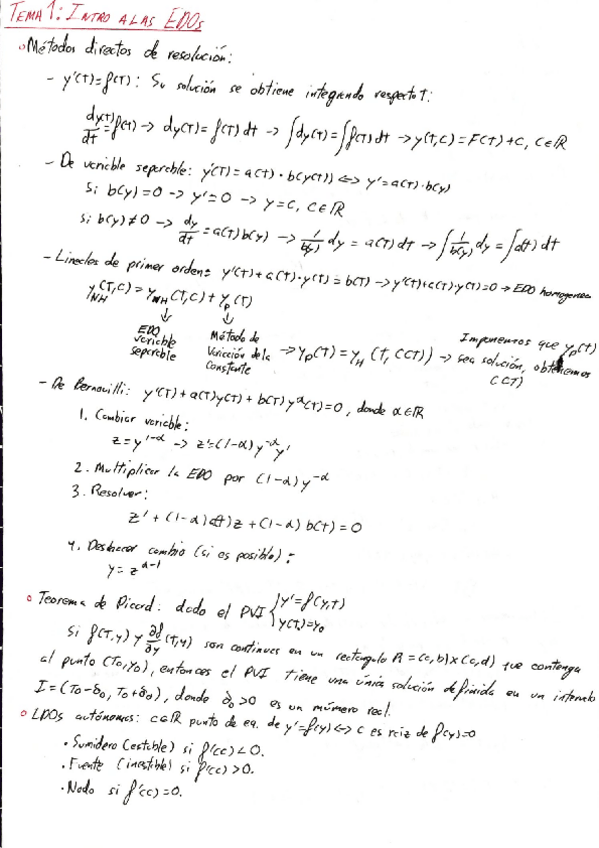 TEMA 1: INTRO A LAS EDOs
○ Métodos directos de resolución:
- y'(T)=f(T): Su solución se obtiene integrando respecto T:
dy(T)/dT = f(T) -> dy(T) = f(T) dt -> ∫dy(T) = ∫f(T) dt -> y(T,C) = F(T)+C, C∈ℝ
- De variable separable: y'(T) = a(T)·b(y(T)) <-> y' = a(T)·b(y)
Si b(y)=0 -> y'=0 -> y=C, C∈ℝ
Si b(y)≠0 -> dy/dt = a(T)b(y) -> 1/b(y) dy = a(T) dt -> ∫1/b(y) dy = ∫a(t) dt
- Lineales de primer orden: y'(T)+a(T)·y(T) = b(T) -> y'(T)+a(T)·y(T)=0 -> EDO homogenea
y_NH(T,C) = y_H(T,C) + y_p(T)
↓ ↓
EDO variable separable
Método de Variación de la Constante -> y_p(T) = y_H(T, C(T)) -> Imponemos que y_p(T) sea solución, obtenemos C(T)
- De Bernouilli: y'(T)+a(T)y(T)+b(T)y^α(T)=0, donde α∈ℝ
1. Cambiar variable:
z=y^1-α -> z'=(1-α)y^-α y'
2. Multiplicar la EDO por (1-α)y^-α
3. Resolver:
z' + (1-α)a(t)z + (1-α)b(t) = 0
4. Deshacer cambio (si es posible):
y=z^α-1
○ Teorema de Picard: dado el PVI { y'=f(y,t)
y(T₀)=y₀
Si f(T,y) y ∂f/∂y (T,y) son continuas en un rectangulo R = (a,b)x(c,d) que contenga
al punto (T₀,y₀), entonces el PVI tiene una única solución definida en un intervalo
I=(T₀-δ₀, T₀+δ₀), donde δ₀>0 es un número real.
○ EDOs autónomas: C∈ℝ punto de eq. de y'=f(y) <-> C es raiz de f(y)=0
· Sumidero (estable) si f'(c)<0.
· Fuente (inestable) si f'(c)>0.
· Nodo si f'(c)=0.